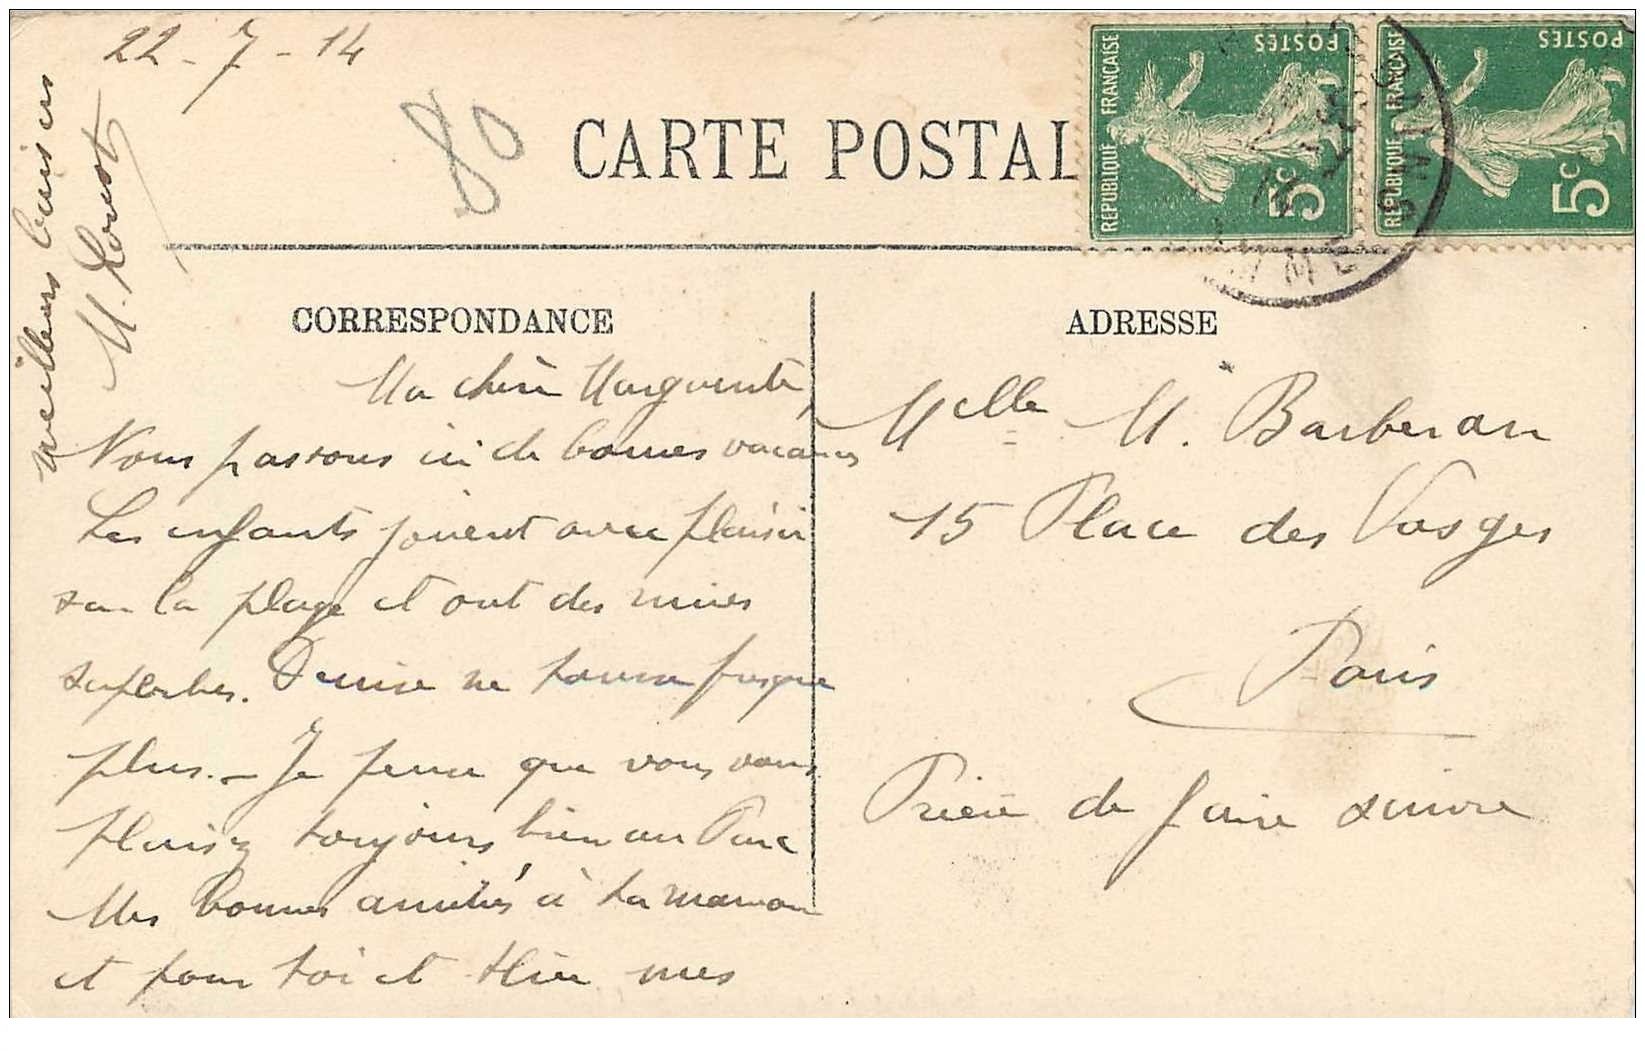 22-7-14
80
CARTE POSTAL
REPUBLIQUE FRANÇAISE
POSTES
5c
REPUBLIQUE FRANÇAISE
POSTES
5c
CORRESPONDANCE
Ma chère Marguerite,
Nous passons ici de bonnes vacances
Les enfants jouent avec plaisir
sur la plage et ont des mines
superbes. Denise ne tousse presque
plus. - Je pense que vous vous
plaisez toujours bien au Parc
Mes bonnes amitiés à ta maman
et pour toi et mes
meilleurs baisers
M.
ADRESSE
Melle M. Barberan
15 Place des Vosges
Paris
Prière de faire suivre